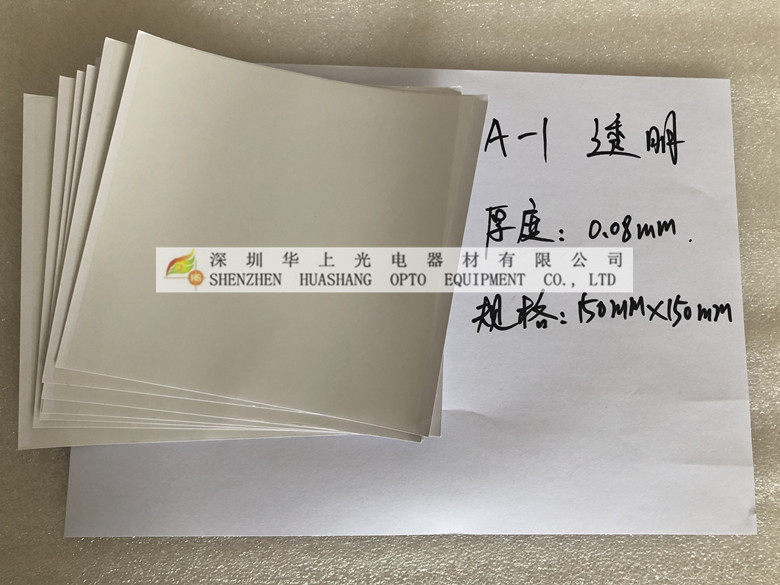 A-1 透明
厚度: 0.08mm.
深圳华上光电器材有限公司
HS SHENZHEN HUASHANG OPTO EQUIPMENT CO., LTD
规格: 150mm×150mm